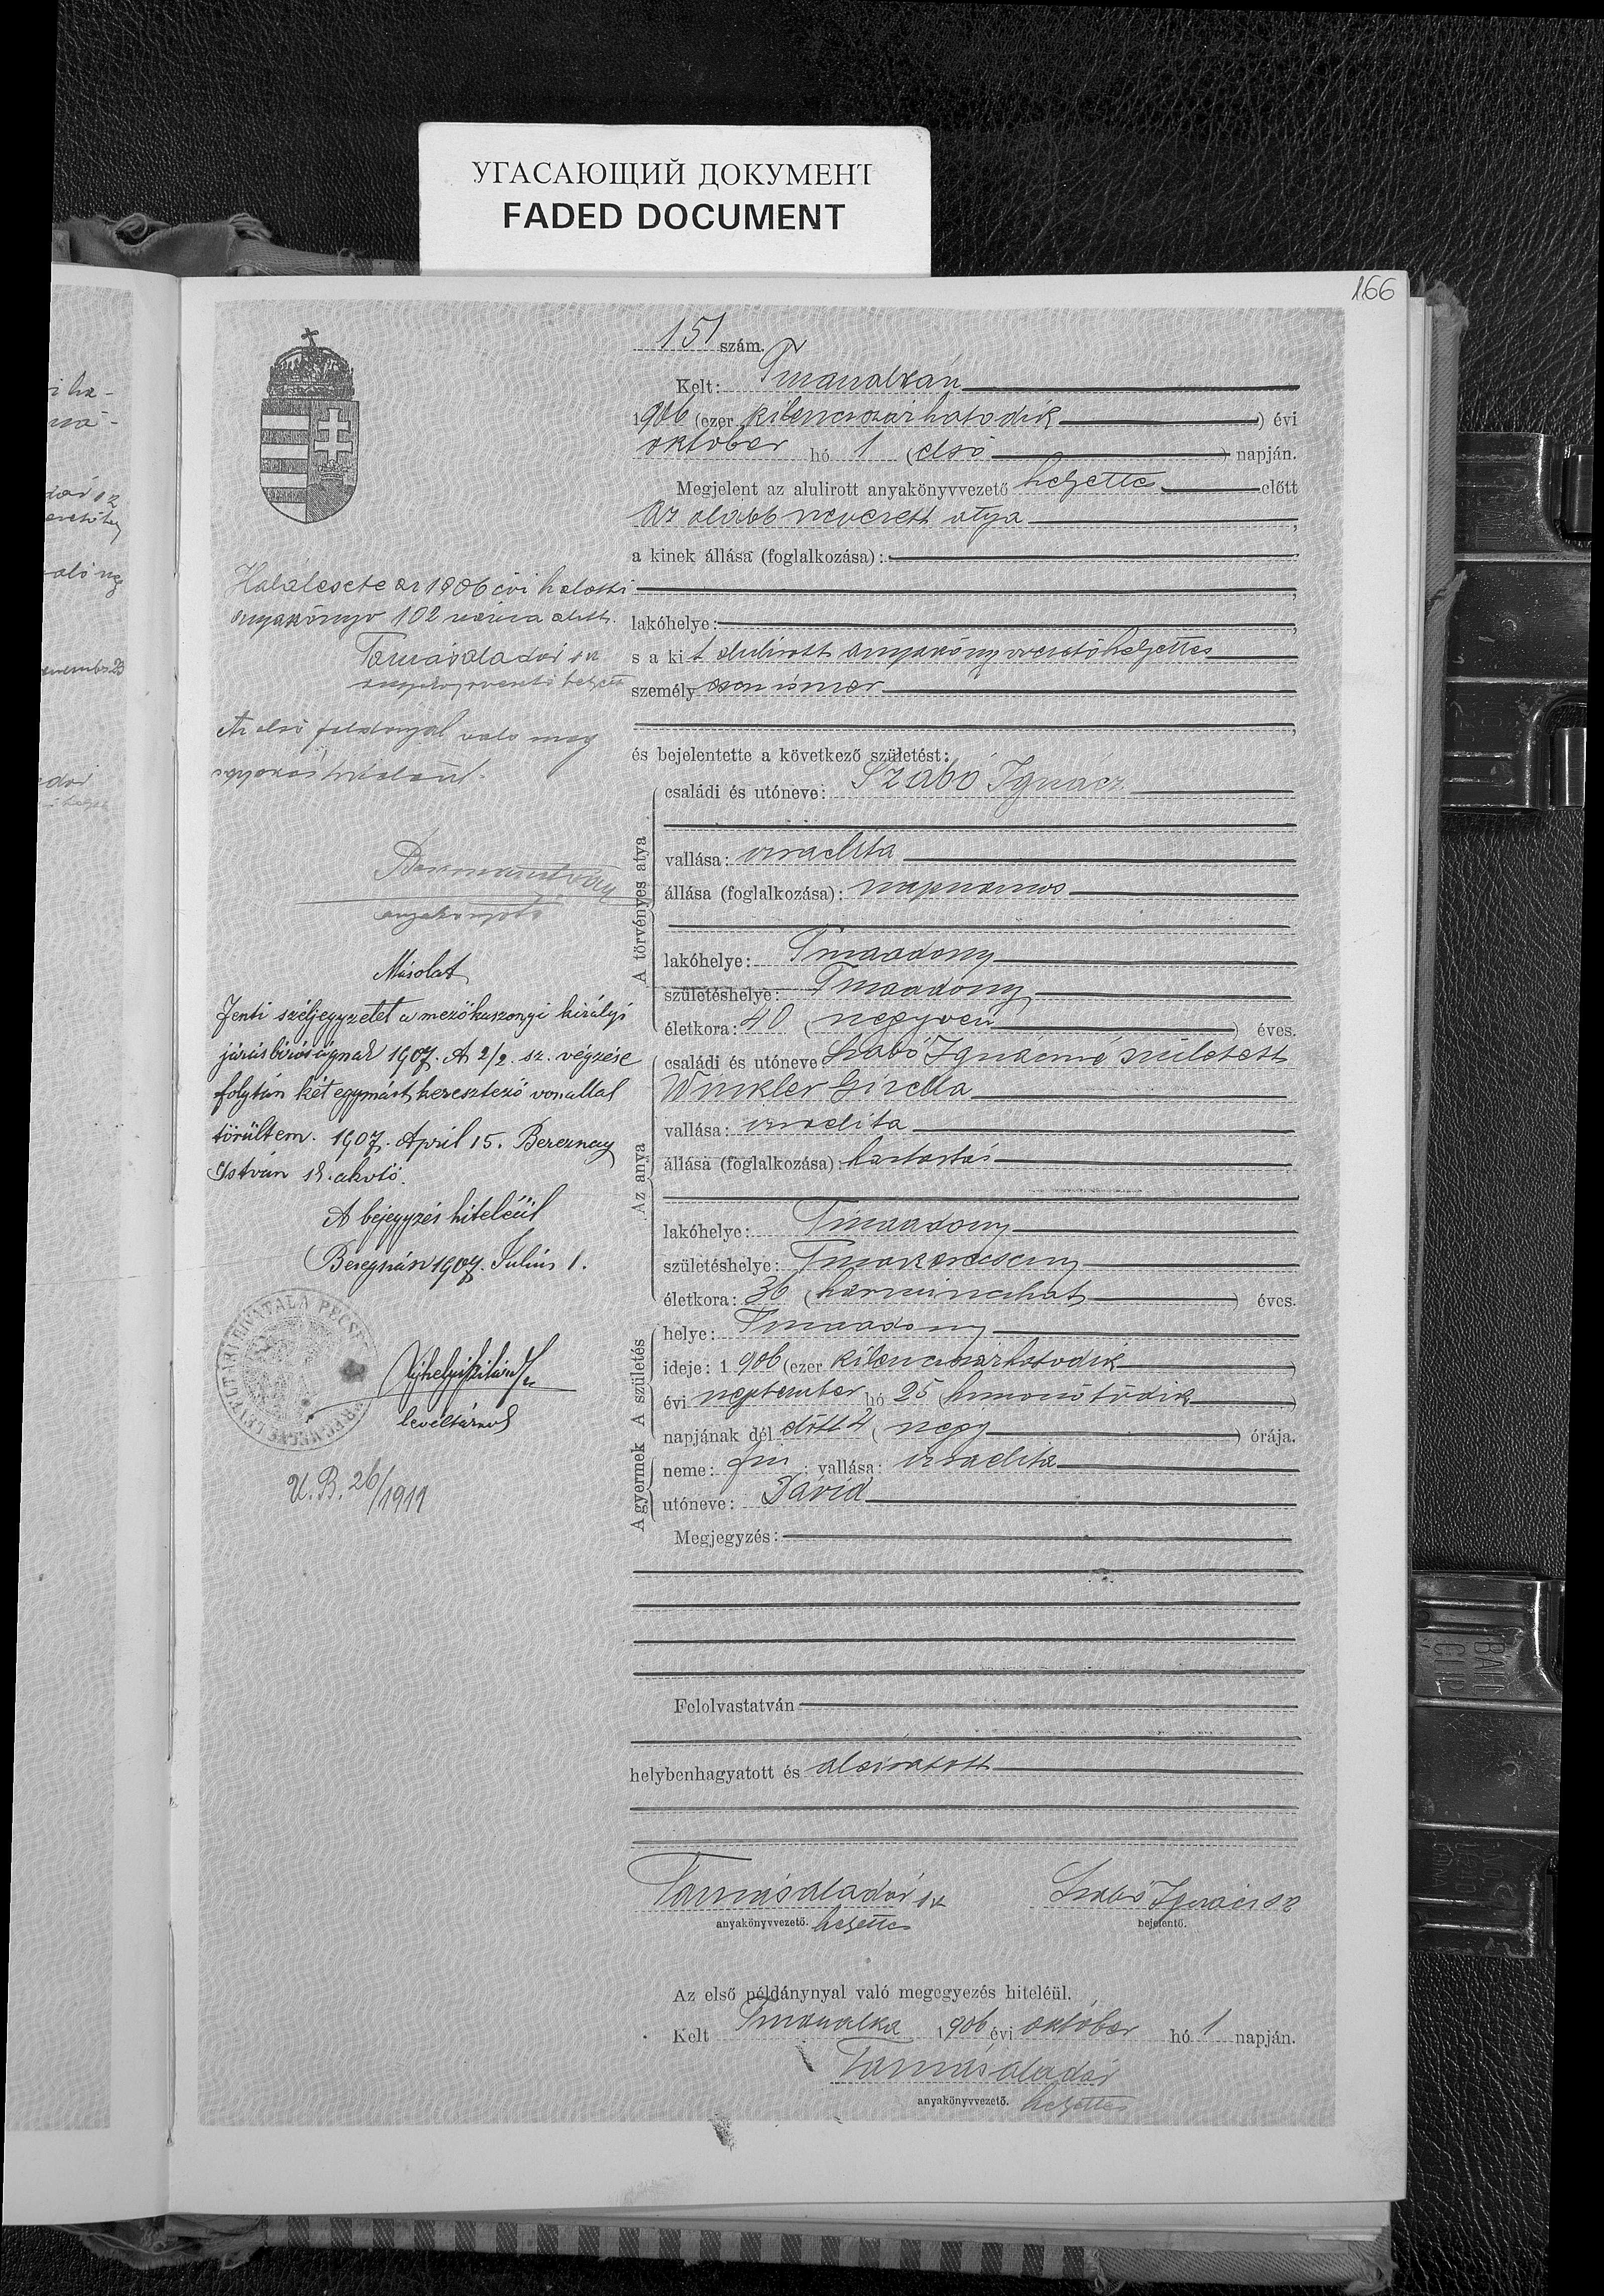 УГАСАЮЩИЙ ДОКУМЕНТ
FADED DOCUMENT
166
151 szám.
Kelt: Tmavalkán
1906 (ezer kilenczszázhatodik) évi
október hó 1 (első) napján.
Megjelent az alulirott anyakönyvvezető helyettes előtt
az alább nevezett atya,
a kinek állása (foglalkozása):
lakóhelye:
s a kit alulirott anyakönyvvezetőhelyettes
személyesen ismer
és bejelentette a következő születést:
A törvényes atya
családi és utóneve: Szabó Ignácz
vallása: izraelita
állása (foglalkozása): napszámos
lakóhelye: Tmaadony
születéshelye: Tmaadony
életkora: 40 (negyven) éves.
Az anya
családi és utóneve Szabó Ignáczné született
Winkler Gizella
vallása: izraelita
állása (foglalkozása): háztartás
lakóhelye: Tmaadony
születéshelye:
életkora: 36 (harminczhat) éves.
A gyermek A születés
helye: Tmaadony
ideje: 1906 (ezer kilenczszázhatodik)
évi szeptember hó 25 (huszonötödik)
napjának dél előtt 4 (négy) órája.
neme: fiú; vallása: izraelita
utóneve: Dávid
Megjegyzés:
Felolvastatván
helybenhagyatott és aláiratott
Tamás Aladár sk
anyakönyvvezető. helyettes
Szabó Ignácz sk
bejelentő.
Az első példánynyal való megegyezés hiteléül.
Kelt Tmavalka 1906 évi október hó 1 napján.
Tamás Aladár
anyakönyvvezető. helyettes
Halálesete az 1906 évi halotti
anyakönyv 102 száma alatt.
Tamás Aladár sk
anyakönyvvezető helyettes
Az első példánynyal való meg
egyezés hiteléül.
anyakönyvv
Másolat
Fenti széljegyzetet a mezőkaszonyi királyi
járásbíróságnak 1907. A 2/2. sz. végzése
folytán két egymást keresztező vonallal
törültem. 1907. April 15. Bereznay
István sk. akvtő.
A bejegyzés hiteléül
Beregszász 1907. Július 1.
levéltárnok
U. B. 26/1911